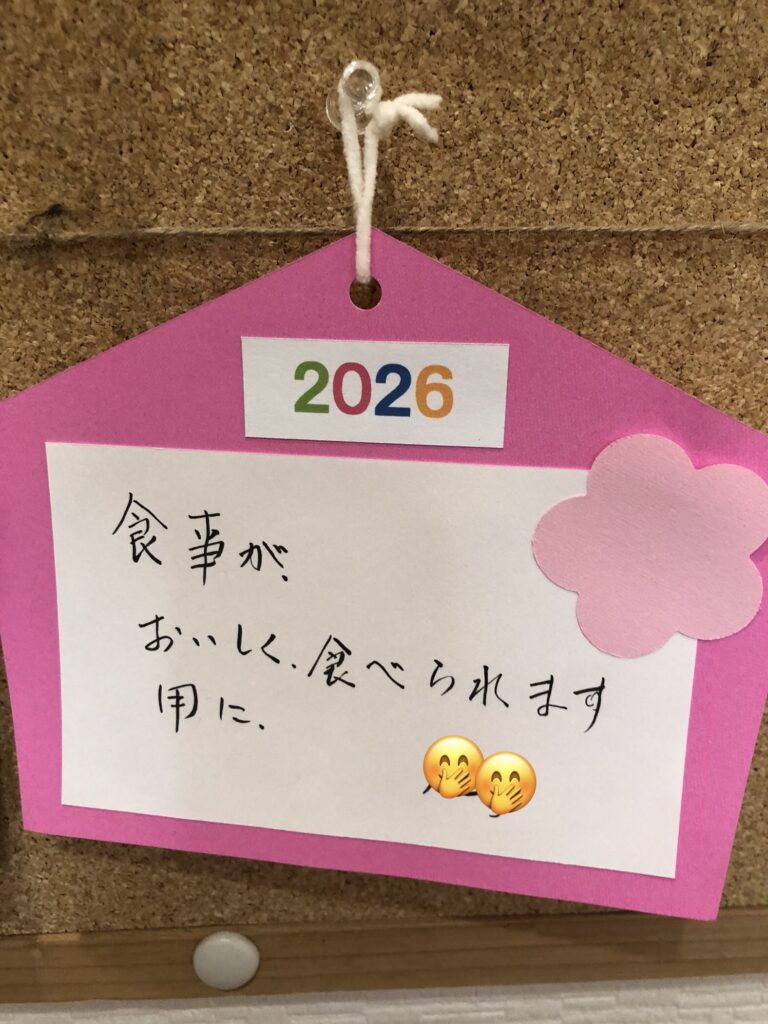 2026
食事が、
おいしく、食べられます
用に、